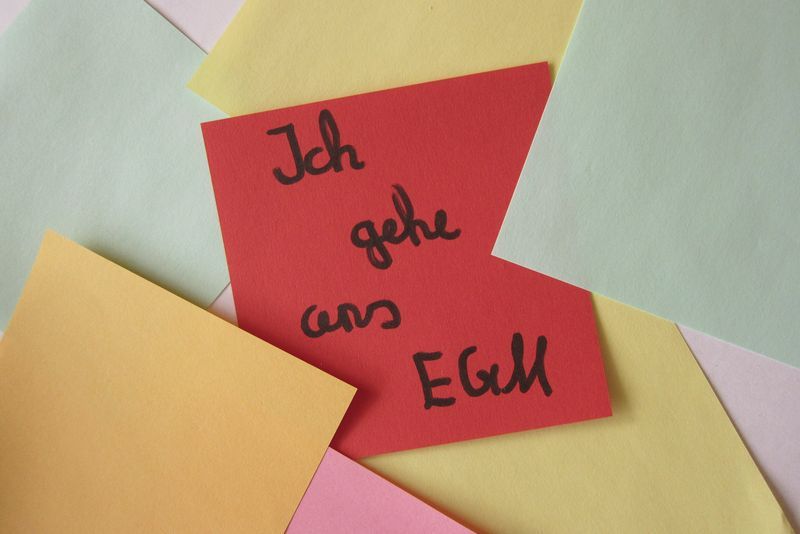 Ich
gehe
ans
EGM